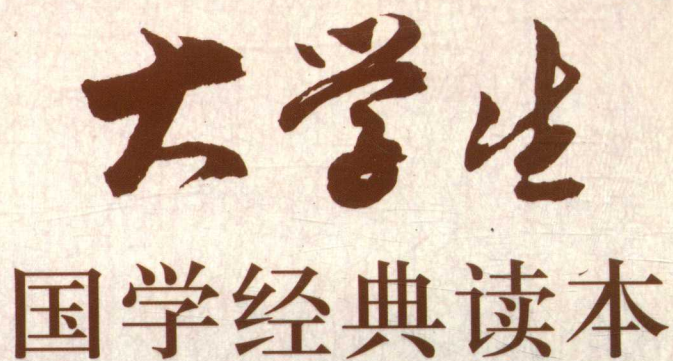 大学生
国学经典读本